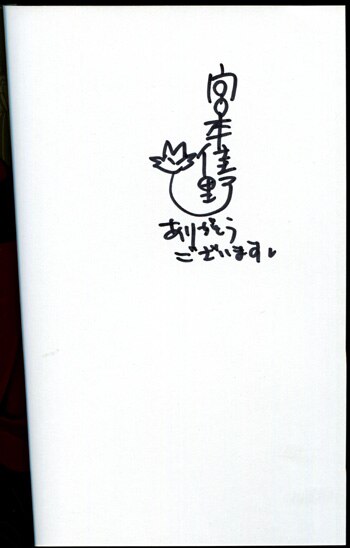 宮本佳野
ありがとう
ございます♥